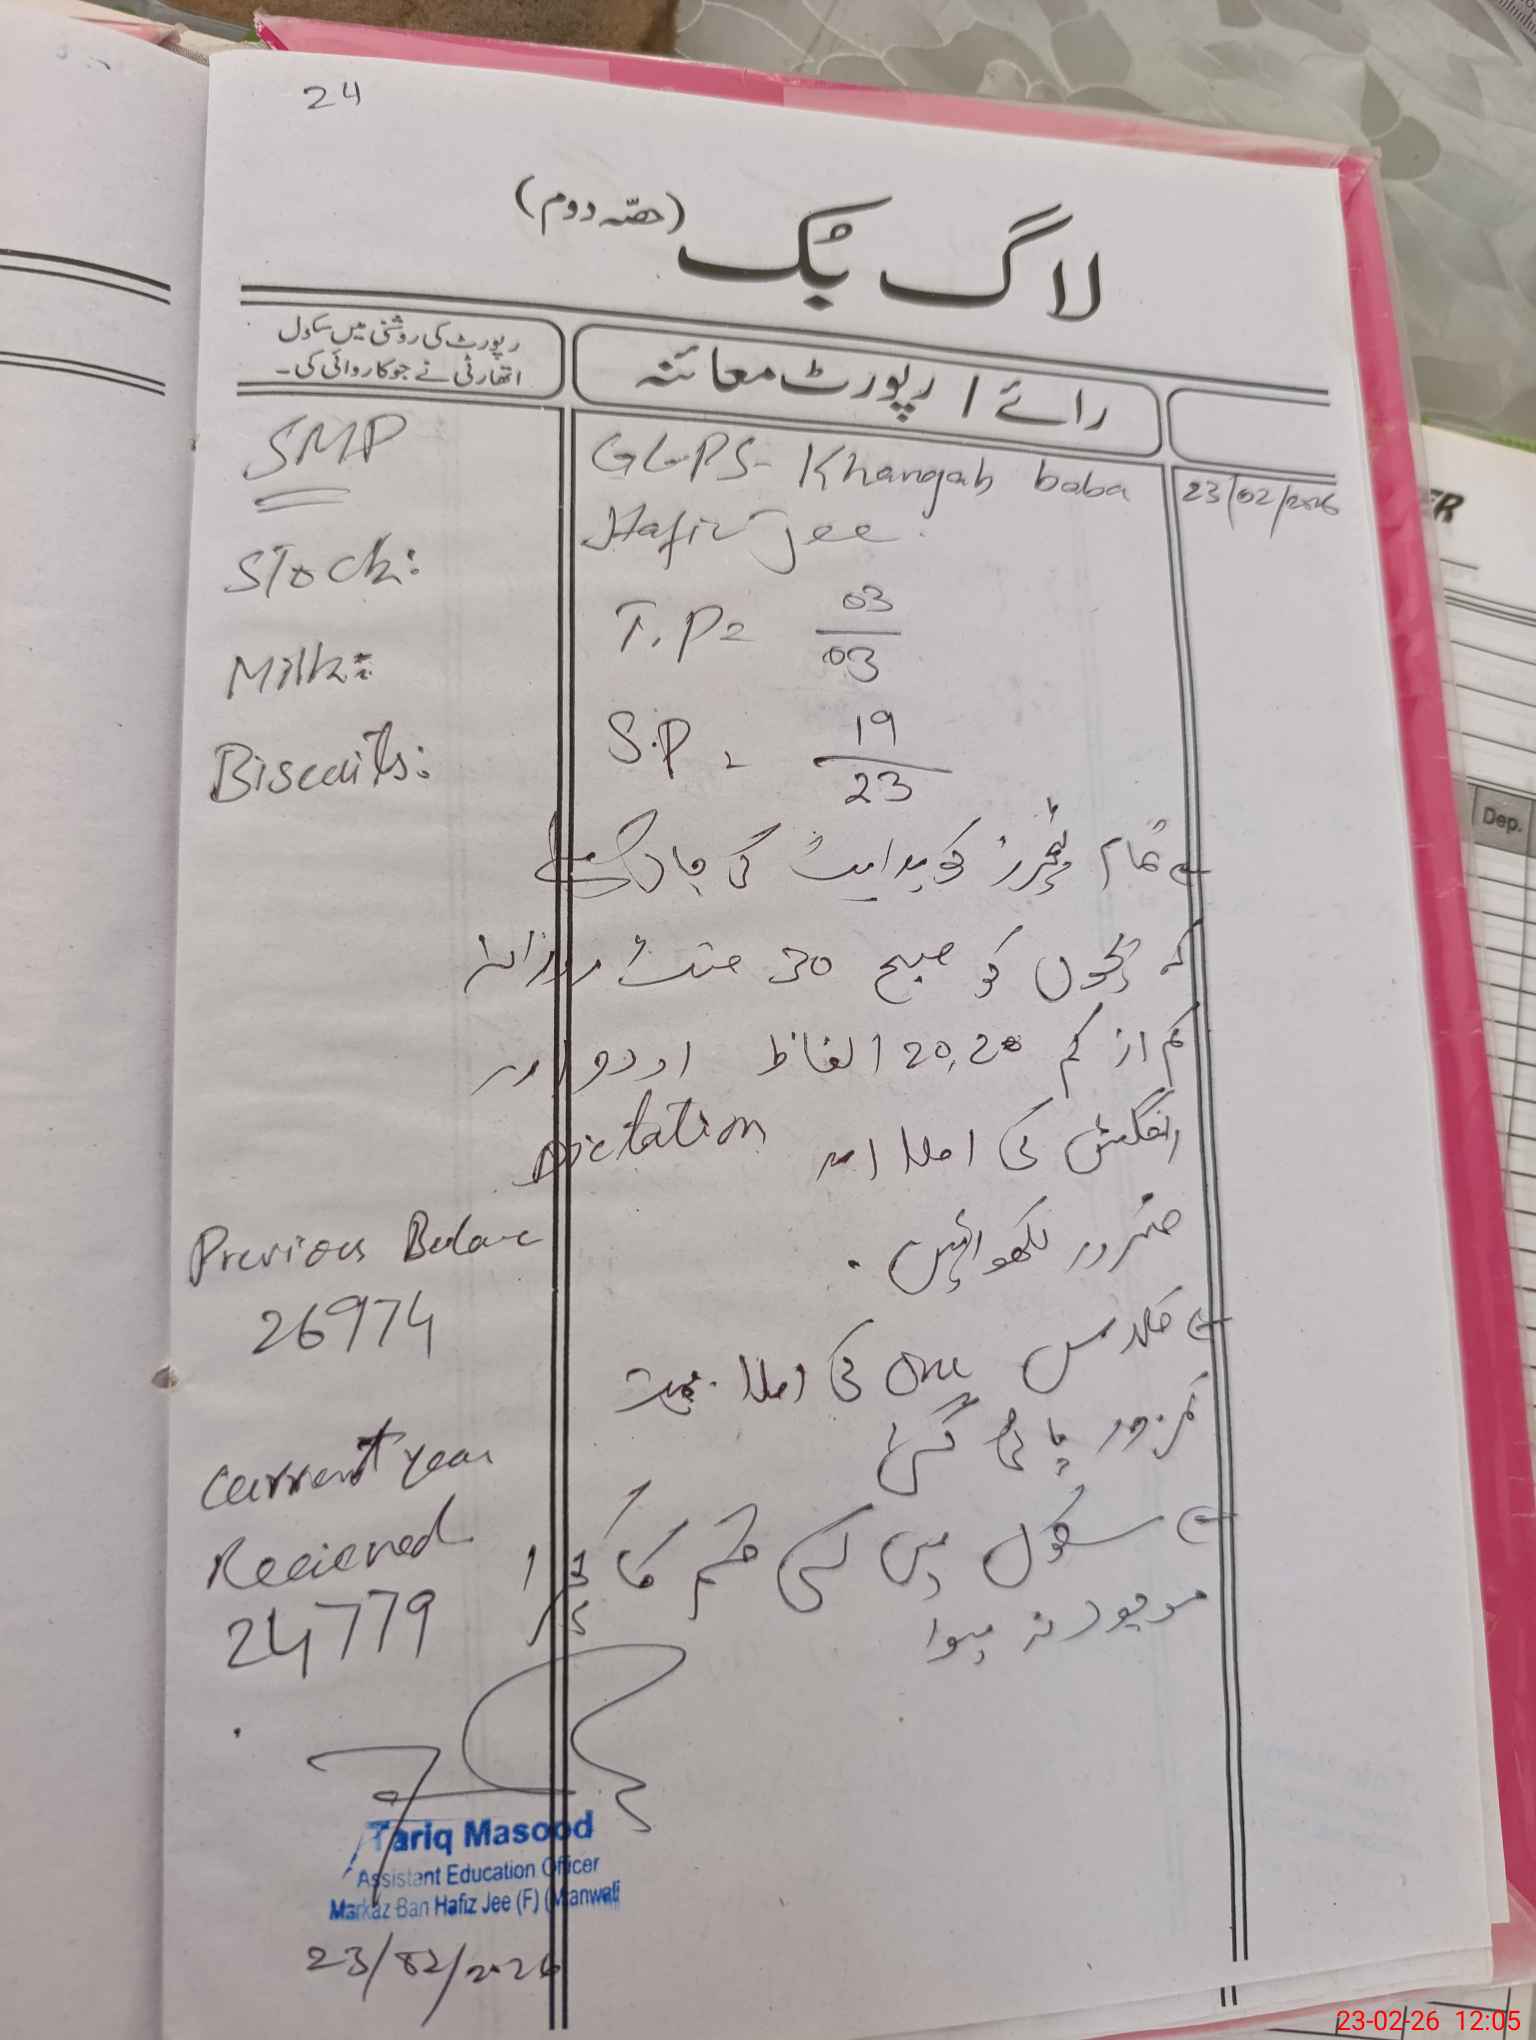 24
لاگ بُک (حصّہ دوم)
رائے / رپورٹ معائنہ
رپورٹ کی روشنی میں سکول
اتھارٹی نے جو کاروائی کی۔
23/02/2026
GGPS- Khanqah baba
Hafiz Jee.
T.P= 03/03
S.P = 19/23
تمام ٹیچرز کو ہدایت کی جاتی ہے
کہ بچوں کو صبح 30 منٹ روزانہ
کم از کم 20,20 الفاظ اردو اور
انگلش کی املا اور Dictation
ضرور لکھوائیں.
کلاس One کی املا بہت
کمزور پائی گئی
سکول میں کسی قسم کا کچرا
موجود نہ ہوا
SMP
Stock:
Milk:
Biscuits:
Previous Balance
26974
Current year
Recieved
24779
Tariq Masood
Assistant Education Officer
Markaz Ban Hafiz Jee (F) (Mianwali
23/02/2026
Dep.
23-02-26 12:05